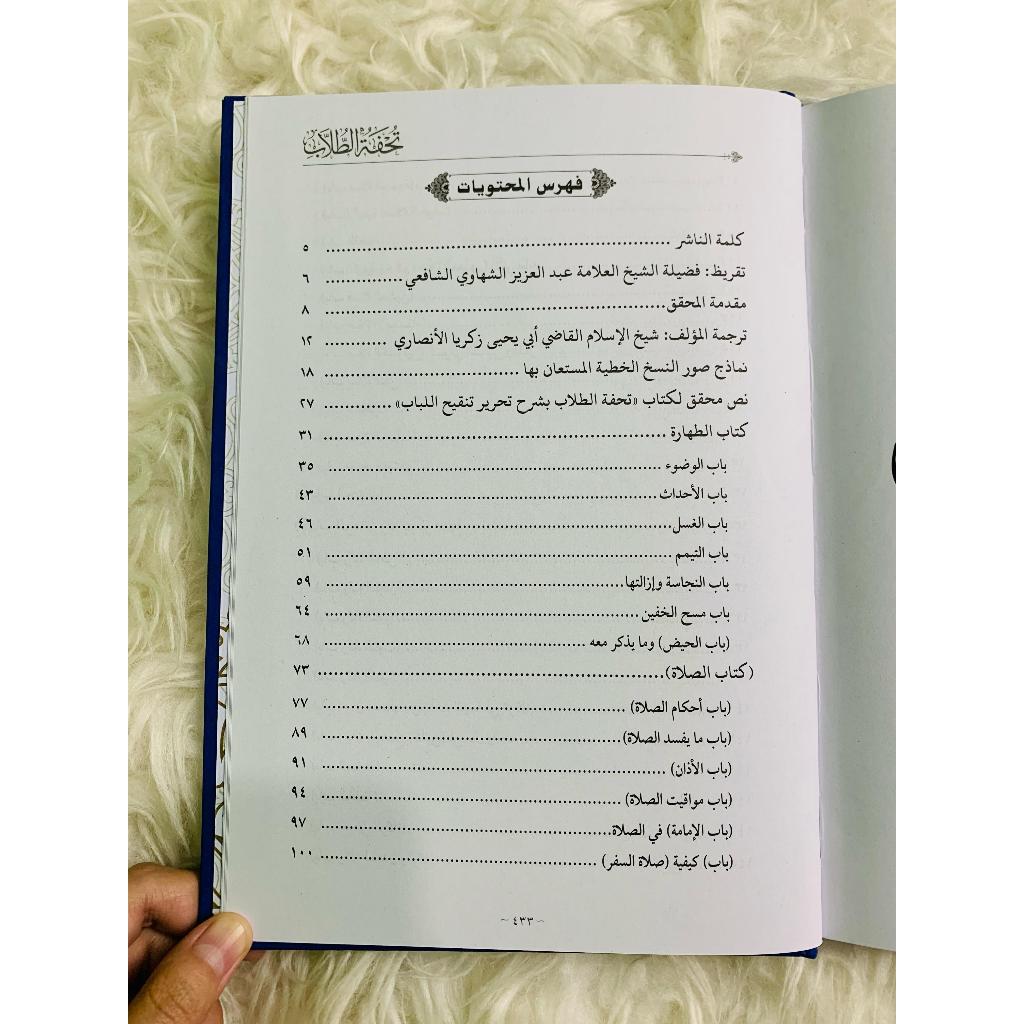 تُحْفَةُ الطُّلَّابِ
فهرس المحتويات
كلمة الناشر ............ ٥
تقريظ: فضيلة الشيخ العلامة عبد العزيز الشهاوي الشافعي ............ ٦
مقدمة المحقق ............ ٨
ترجمة المؤلف: شيخ الإسلام القاضي أبي يحيى زكريا الأنصاري ............ ١٢
نماذج صور النسخ الخطية المستعان بها ............ ١٨
نص محقق لكتاب «تحفة الطلاب بشرح تحرير تنقيح اللباب» ............ ٢٧
كتاب الطهارة ............ ٣١
باب الوضوء ............ ٣٥
باب الأحداث ............ ٤٣
باب الغسل ............ ٤٦
باب التيمم ............ ٥١
باب النجاسة وإزالتها ............ ٥٩
باب مسح الخفين ............ ٦٤
(باب الحيض) وما يذكر معه ............ ٦٨
(كتاب الصلاة) ............ ٧٣
(باب أحكام الصلاة) ............ ٧٧
(باب ما يفسد الصلاة) ............ ٨٩
(باب الأذان) ............ ٩١
(باب مواقيت الصلاة) ............ ٩٤
(باب الإمامة) في الصلاة ............ ٩٧
(باب) كيفية (صلاة السفر) ............ ١٠٠
~ ٤٣٣ ~